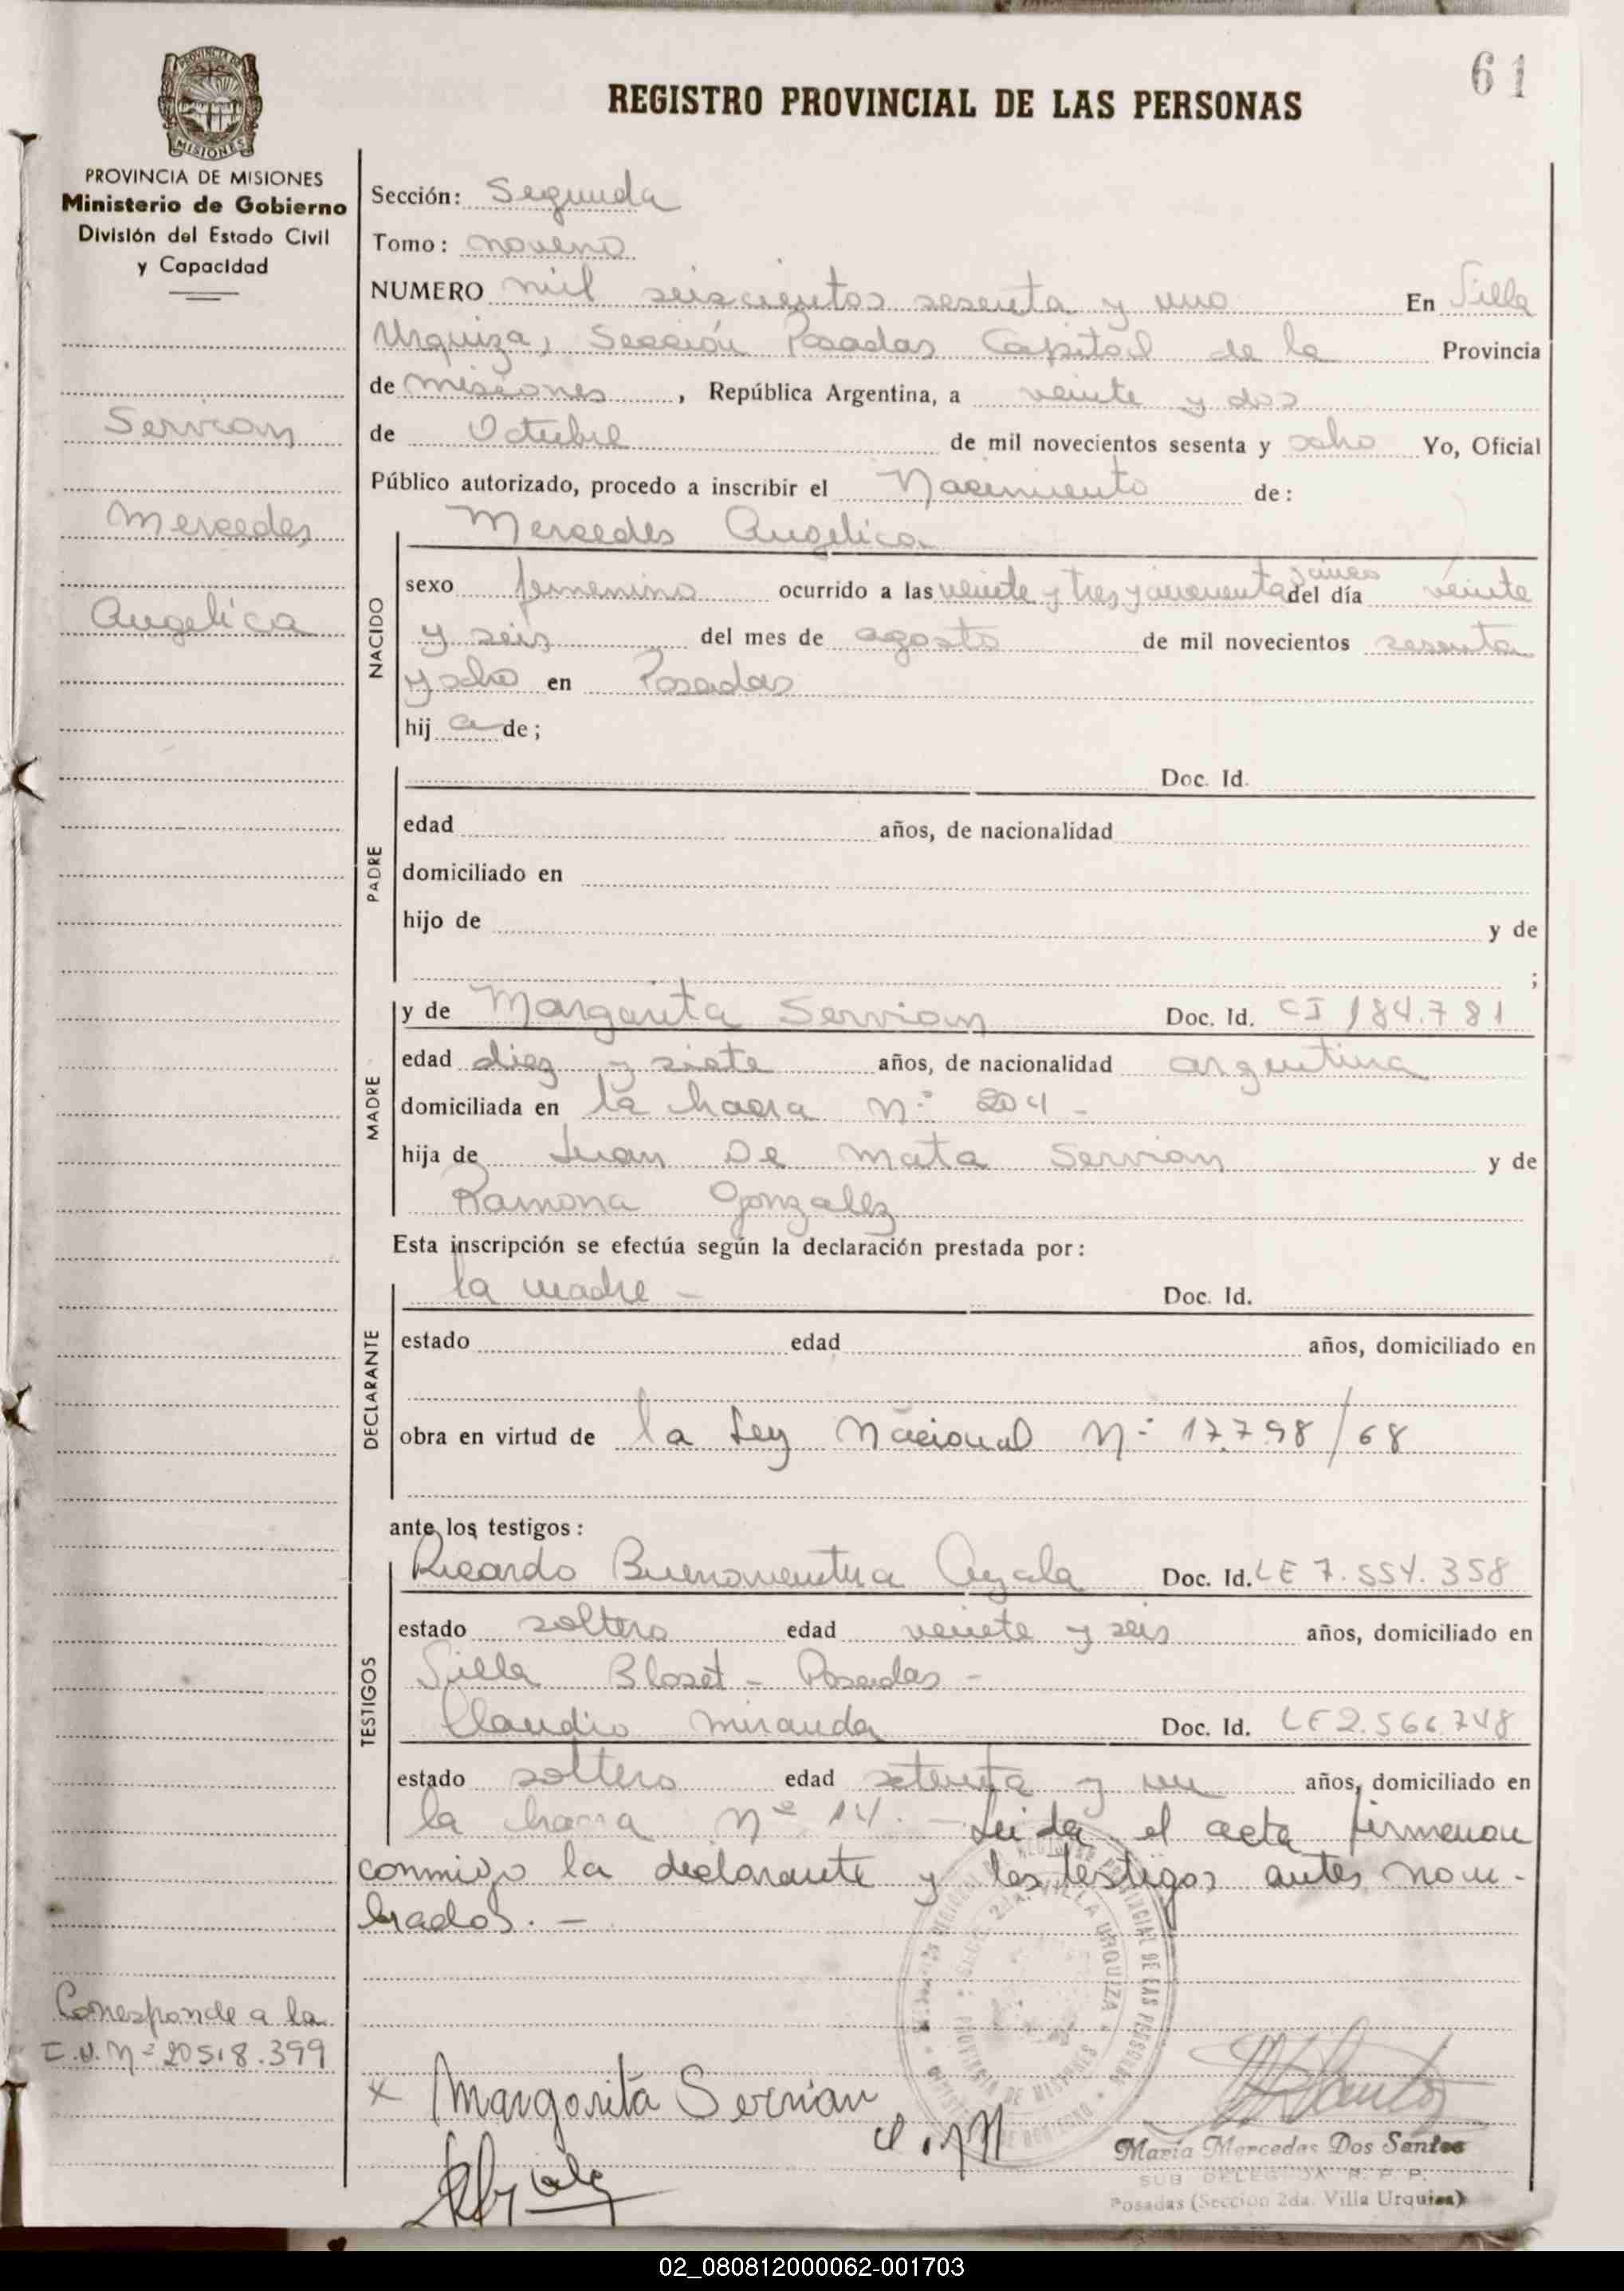 61
REGISTRO PROVINCIAL DE LAS PERSONAS
PROVINCIA DE MISIONES
Ministerio de Gobierno
División del Estado Civil
y Capacidad
Servian
Mercedes
Angelica
Sección: Segunda
Tomo: noveno
NUMERO mil seiscientos sesenta y uno En Villa
Urquiza, Sección Posadas Capital de la Provincia
de misiones, República Argentina, a veinte y dos
de Octubre de mil novecientos sesenta y ocho Yo, Oficial
Público autorizado, procedo a inscribir el Nacimiento de:
Mercedes Angelica
NACIDO
sexo femenino ocurrido a las veinte y tres y cuarenta y cinco del día veinte
y seis del mes de agosto de mil novecientos sesenta
y ocho en Posadas
hij a de;
PADRE
Doc. Id.
edad años, de nacionalidad
domiciliado en
hijo de y de
;
MADRE
y de Margarita Servian Doc. Id. CI 184.781
edad diez y siete años, de nacionalidad argentina
domiciliada en la hacra N° 204 -
hija de Juan De Mata Servian y de
Ramona Gonzalez
Esta inscripción se efectúa según la declaración prestada por:
DECLARANTE
la madre - Doc. Id.
estado edad años, domiciliado en
obra en virtud de la Ley Nacional N° 17.798/68
ante los testigos:
TESTIGOS
Ricardo Buenaventura Ayala Doc. Id. LE 7.554.358
estado soltero edad veinte y seis años, domiciliado en
Villa Bloset - Posadas -
Claudio Miranda Doc. Id. LE 2.566.748
estado soltero edad setenta y un años, domiciliado en
la hacra N° 14. - Leida el acta firmaron
conmigo la declarante y los testigos antes nom-
brados. -
Corresponde a la
N° 20518.399
x Margarita Servian
VILLA URQUIZA
PROVINCIA DE MISIONES
María Mercedes Dos Santos
SUB DELEGADA R. P. P.
Posadas (Sección 2da. Villa Urquiza)
02_080812000062-001703